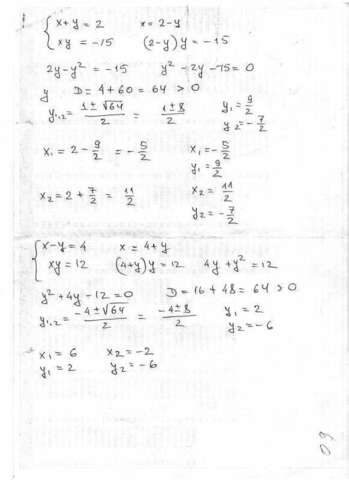 { x+y=2 x=2-y
xy=-15 (2-y)y=-15
2y-y²=-15 y²-2y-15=0
y D=4+60=64>0
y₁,₂= (1±√64)/2 = (1±8)/2 y₁=9/2
y₂=-7/2
x₁=2-9/2=-5/2 x₁=-5/2
y₁=9/2
x₂=2+7/2=11/2 x₂=11/2
y₂=-7/2
{ x-y=4 x=4+y
xy=12 (4+y)y=12 4y+y²=12
y²+4y-12=0 D=16+48=64>0
y₁,₂= (-4±√64)/2 = (-4±8)/2 y₁=2
y₂=-6
x₁=6 x₂=-2
y₁=2 y₂=-6
60